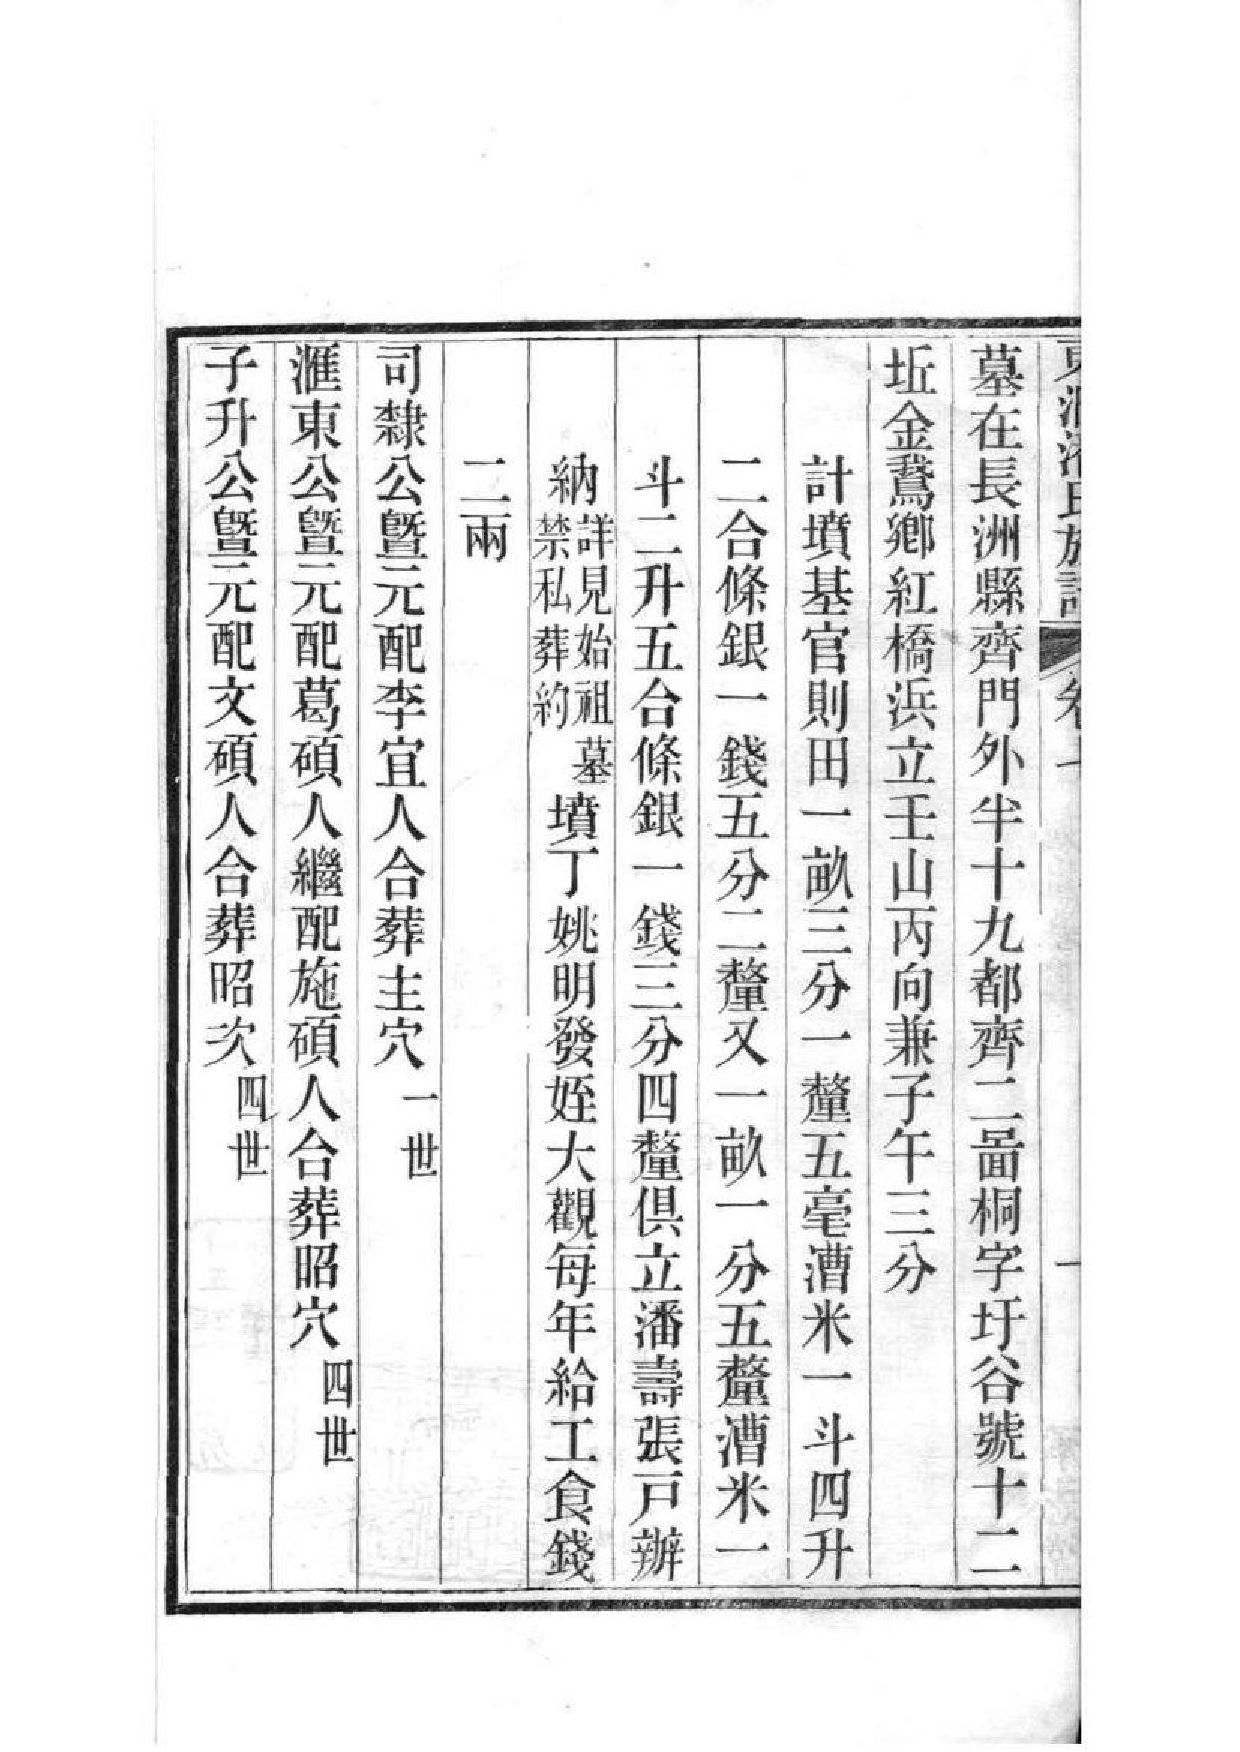 東洞潘氏族譜 卷十 一
墓在長洲縣齊門外半十九都齊二啚桐字圩谷號十二
坵金鵞鄉紅橋浜立壬山丙向兼子午三分
計墳基官則田一畝三分一釐五毫漕米一斗四升
二合條銀一錢五分二釐又一畝一分五釐漕米一
斗二升五合條銀一錢三分四釐俱立潘壽張戸辦
納詳見始祖墓禁私葬約墳丁姚明發姪大觀每年給工食錢
二兩
司隸公曁元配李宜人合葬主穴 一世
滙東公曁元配葛碩人繼配施碩人合葬昭穴 四世
子升公曁元配文碩人合葬昭次 四世